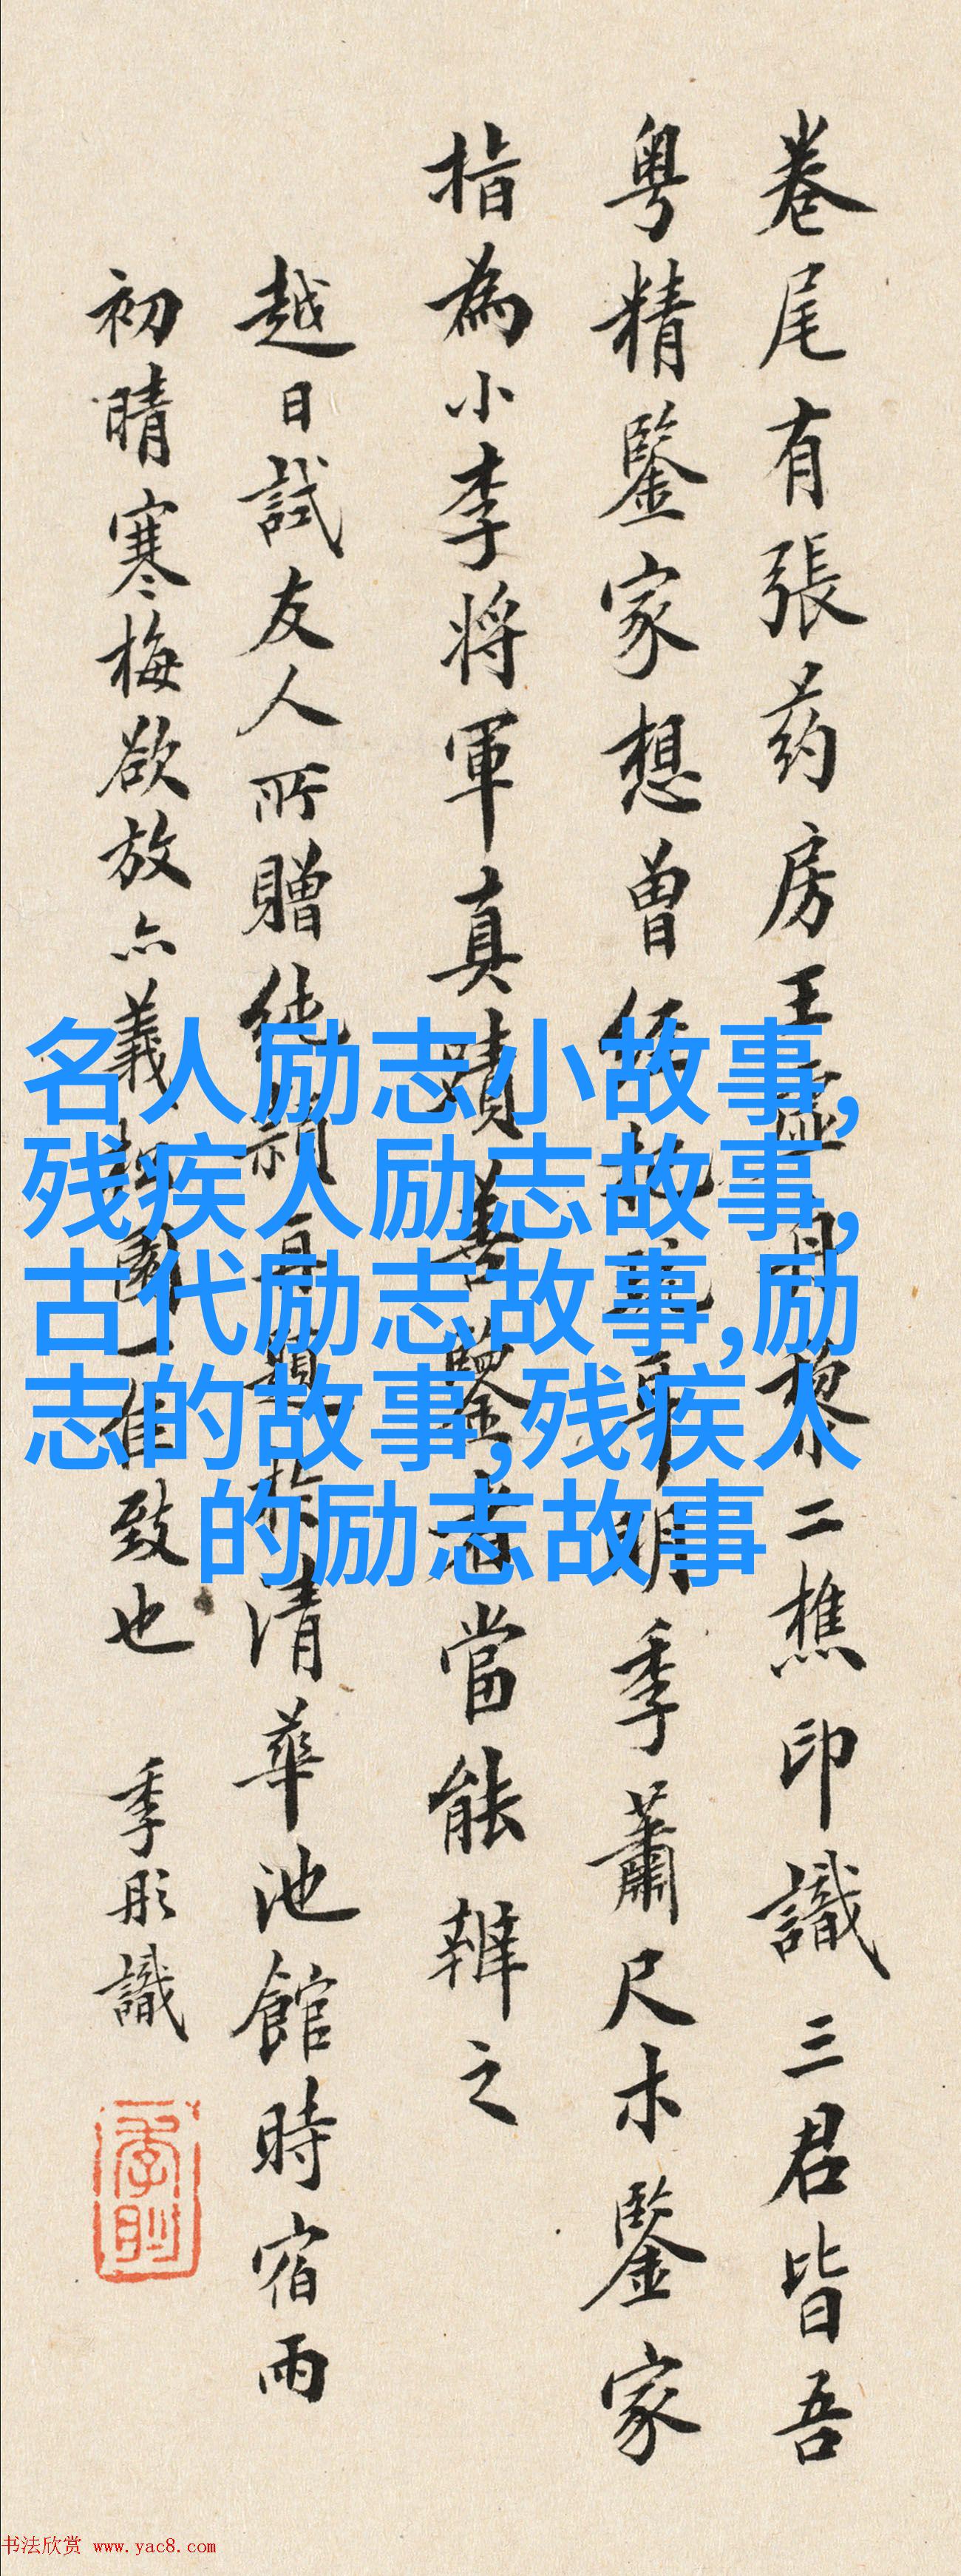 卷尾有張药房王黎二樵印識三君皆吾
粤精鑒家想曾明季蕭尺木鑒家
指為小李将軍真蹟善鑒者當能辨之
越日試友人所贈純穎再題於清華池館時宿雨
初晴寒梅欲放亦義園一佳致也 季彤識
名人励志小故事,
残疾人励志故事,
古代励志故事,励
志的故事,残疾人
的励志故事
书法欣赏 www.yac8.com